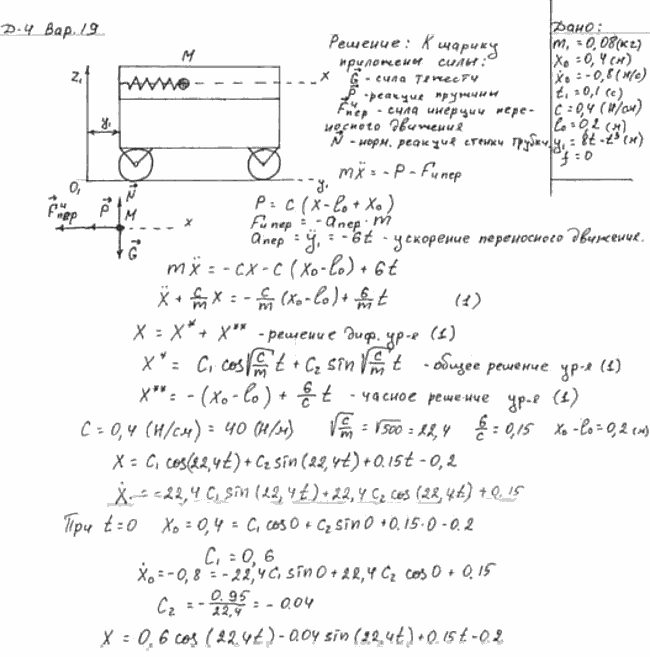 Д-4 Вар. 19
M
Z₁
x
y₁
O₁
y₁
N⃗
F⃗ᵘпер
P⃗
M
x
G⃗
Решение: К шарику
приложены силы:
G⃗ - сила тяжести
P⃗ - реакция пружины
F⃗ᵘпер - сила инерции пере-
носного движения
N⃗ - норм. реакция стенки трубки
Дано:
m₁ = 0,08 (кг)
x₀ = 0,4 (м)
ẋ₀ = -0,8 (м/с)
t₁ = 0,1 (с)
c = 0,4 (Н/см)
l₀ = 0,2 (м)
y₁ = 8t - t³ (м)
f = 0
mẍ = -P - Fᵤпер
P = c (x - l₀ + x₀)
Fᵤпер = -aпер · m
aпер = ÿ₁ = -6t - ускорение переносного движения.
mẍ = -cx - c (x₀ - l₀) + 6t
ẍ + c/m x = - c/m (x₀ - l₀) + 6/m t (1)
X = X* + X** - решение диф. ур-я (1)
X* = C₁ cos√(c/m) t + C₂ sin√(c/m) t - общее решение ур-я (1)
X** = -(x₀ - l₀) + 6/c t - часное решение ур-я (1)
C = 0,4 (Н/см) = 40 (Н/м) √(c/m) = √500 = 22,4 6/c = 0,15 x₀ - l₀ = 0,2 (м)
X = C₁ cos(22,4t) + C₂ sin(22,4t) + 0.15t - 0,2
Ẋ = -22,4 C₁ sin(22,4t) + 22,4 C₂ cos(22,4t) + 0,15
При t=0 X₀ = 0,4 = C₁ cos0 + C₂ sin0 + 0.15·0 - 0.2
C₁ = 0,6
Ẋ₀ = -0,8 = -22,4 C₁ sin0 + 22,4 C₂ cos0 + 0.15
C₂ = - 0.95/22,4 = -0.04
X = 0,6 cos (22,4t) - 0.04 sin(22,4t) + 0,15t - 0.2